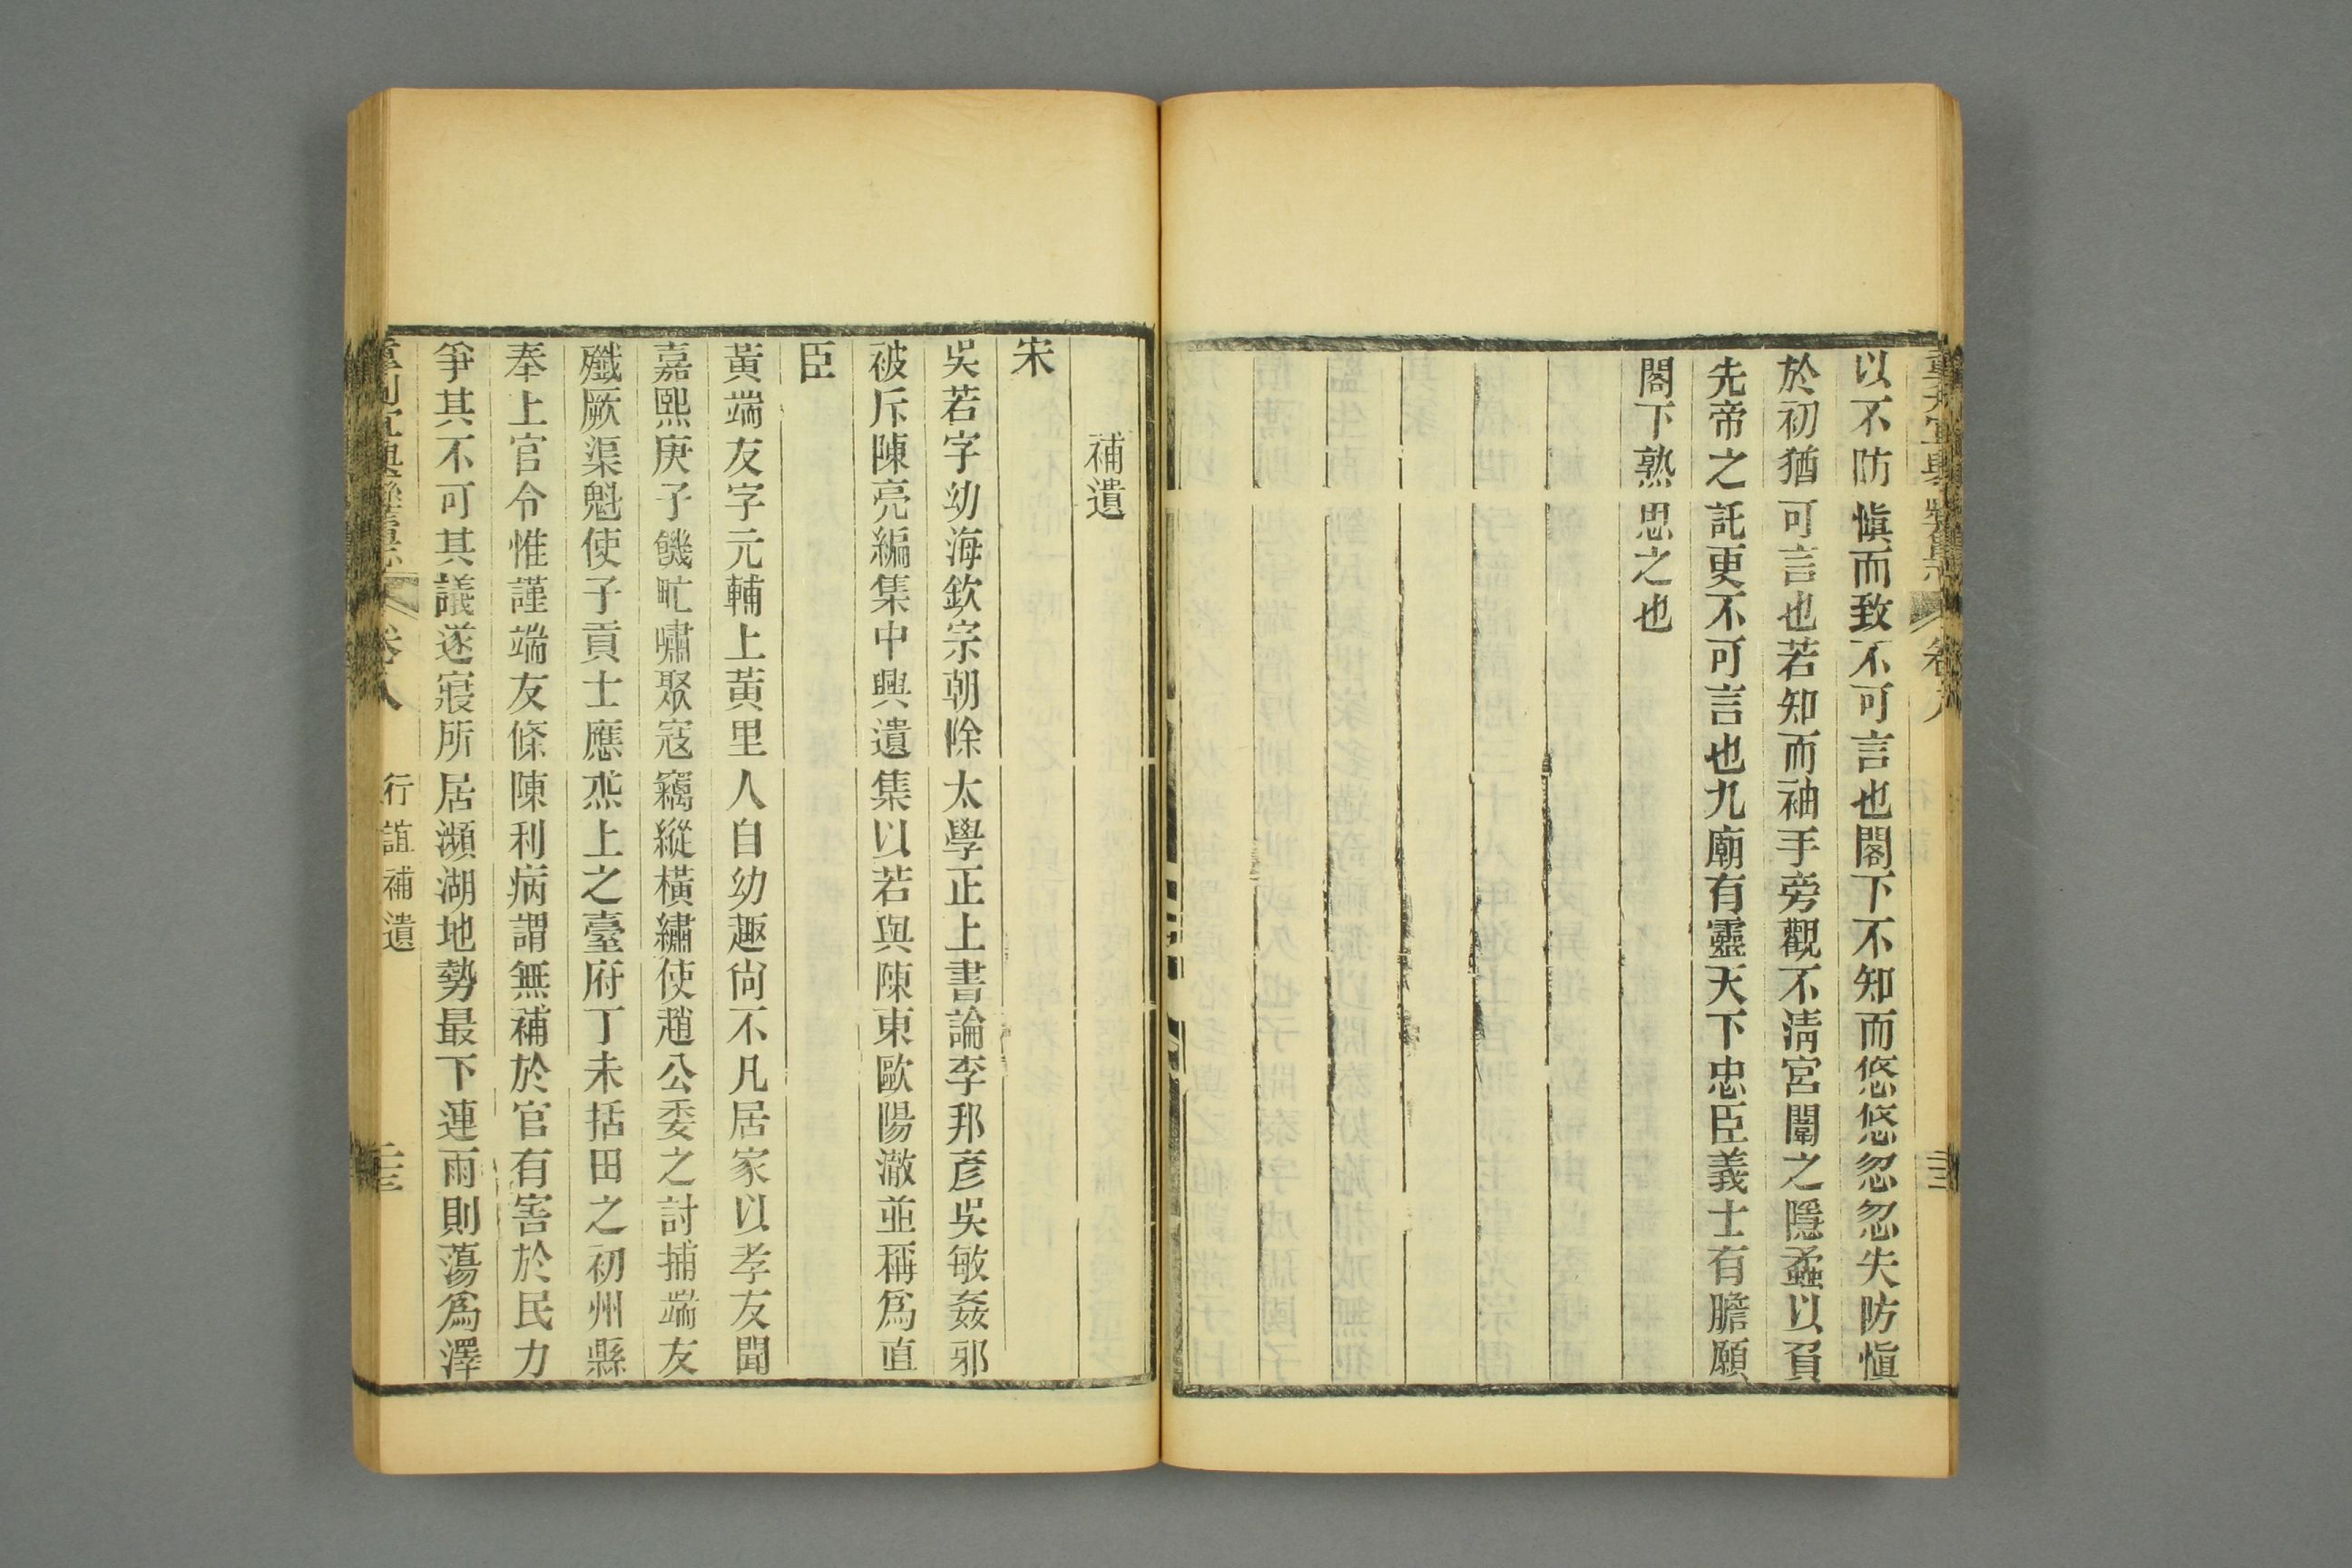 以不防愼而致不可言也閣下不知而悠悠忽忽失防愼
於初猶可言也若知而袖手旁觀不淸宮闈之隱蠹以負
先帝之託更不可言也九廟有靈天下忠臣義士有膽願
閣下熟思之也
補遺
宋
吳若字幼海欽宗朝除太學正上書論李邦彥吳敏姦邪
被斥陳亮編集中興遺集以若與陳東歐陽澈並稱爲直
臣
黃端友字元輔上黃里人自幼趣尙不凡居家以孝友聞
嘉熙庚子饑甿嘯聚寇竊縱橫繡使趙公委之討捕端友
殲厥渠魁使子貢士應烝上之臺府丁未括田之初州縣
奉上官令惟謹端友條陳利病謂無補於官有害於民力
爭其不可其議遂寢所居瀕湖地勢最下連雨則蕩爲澤
重刊宜興縣舊志 卷八 行誼補遺 二十三